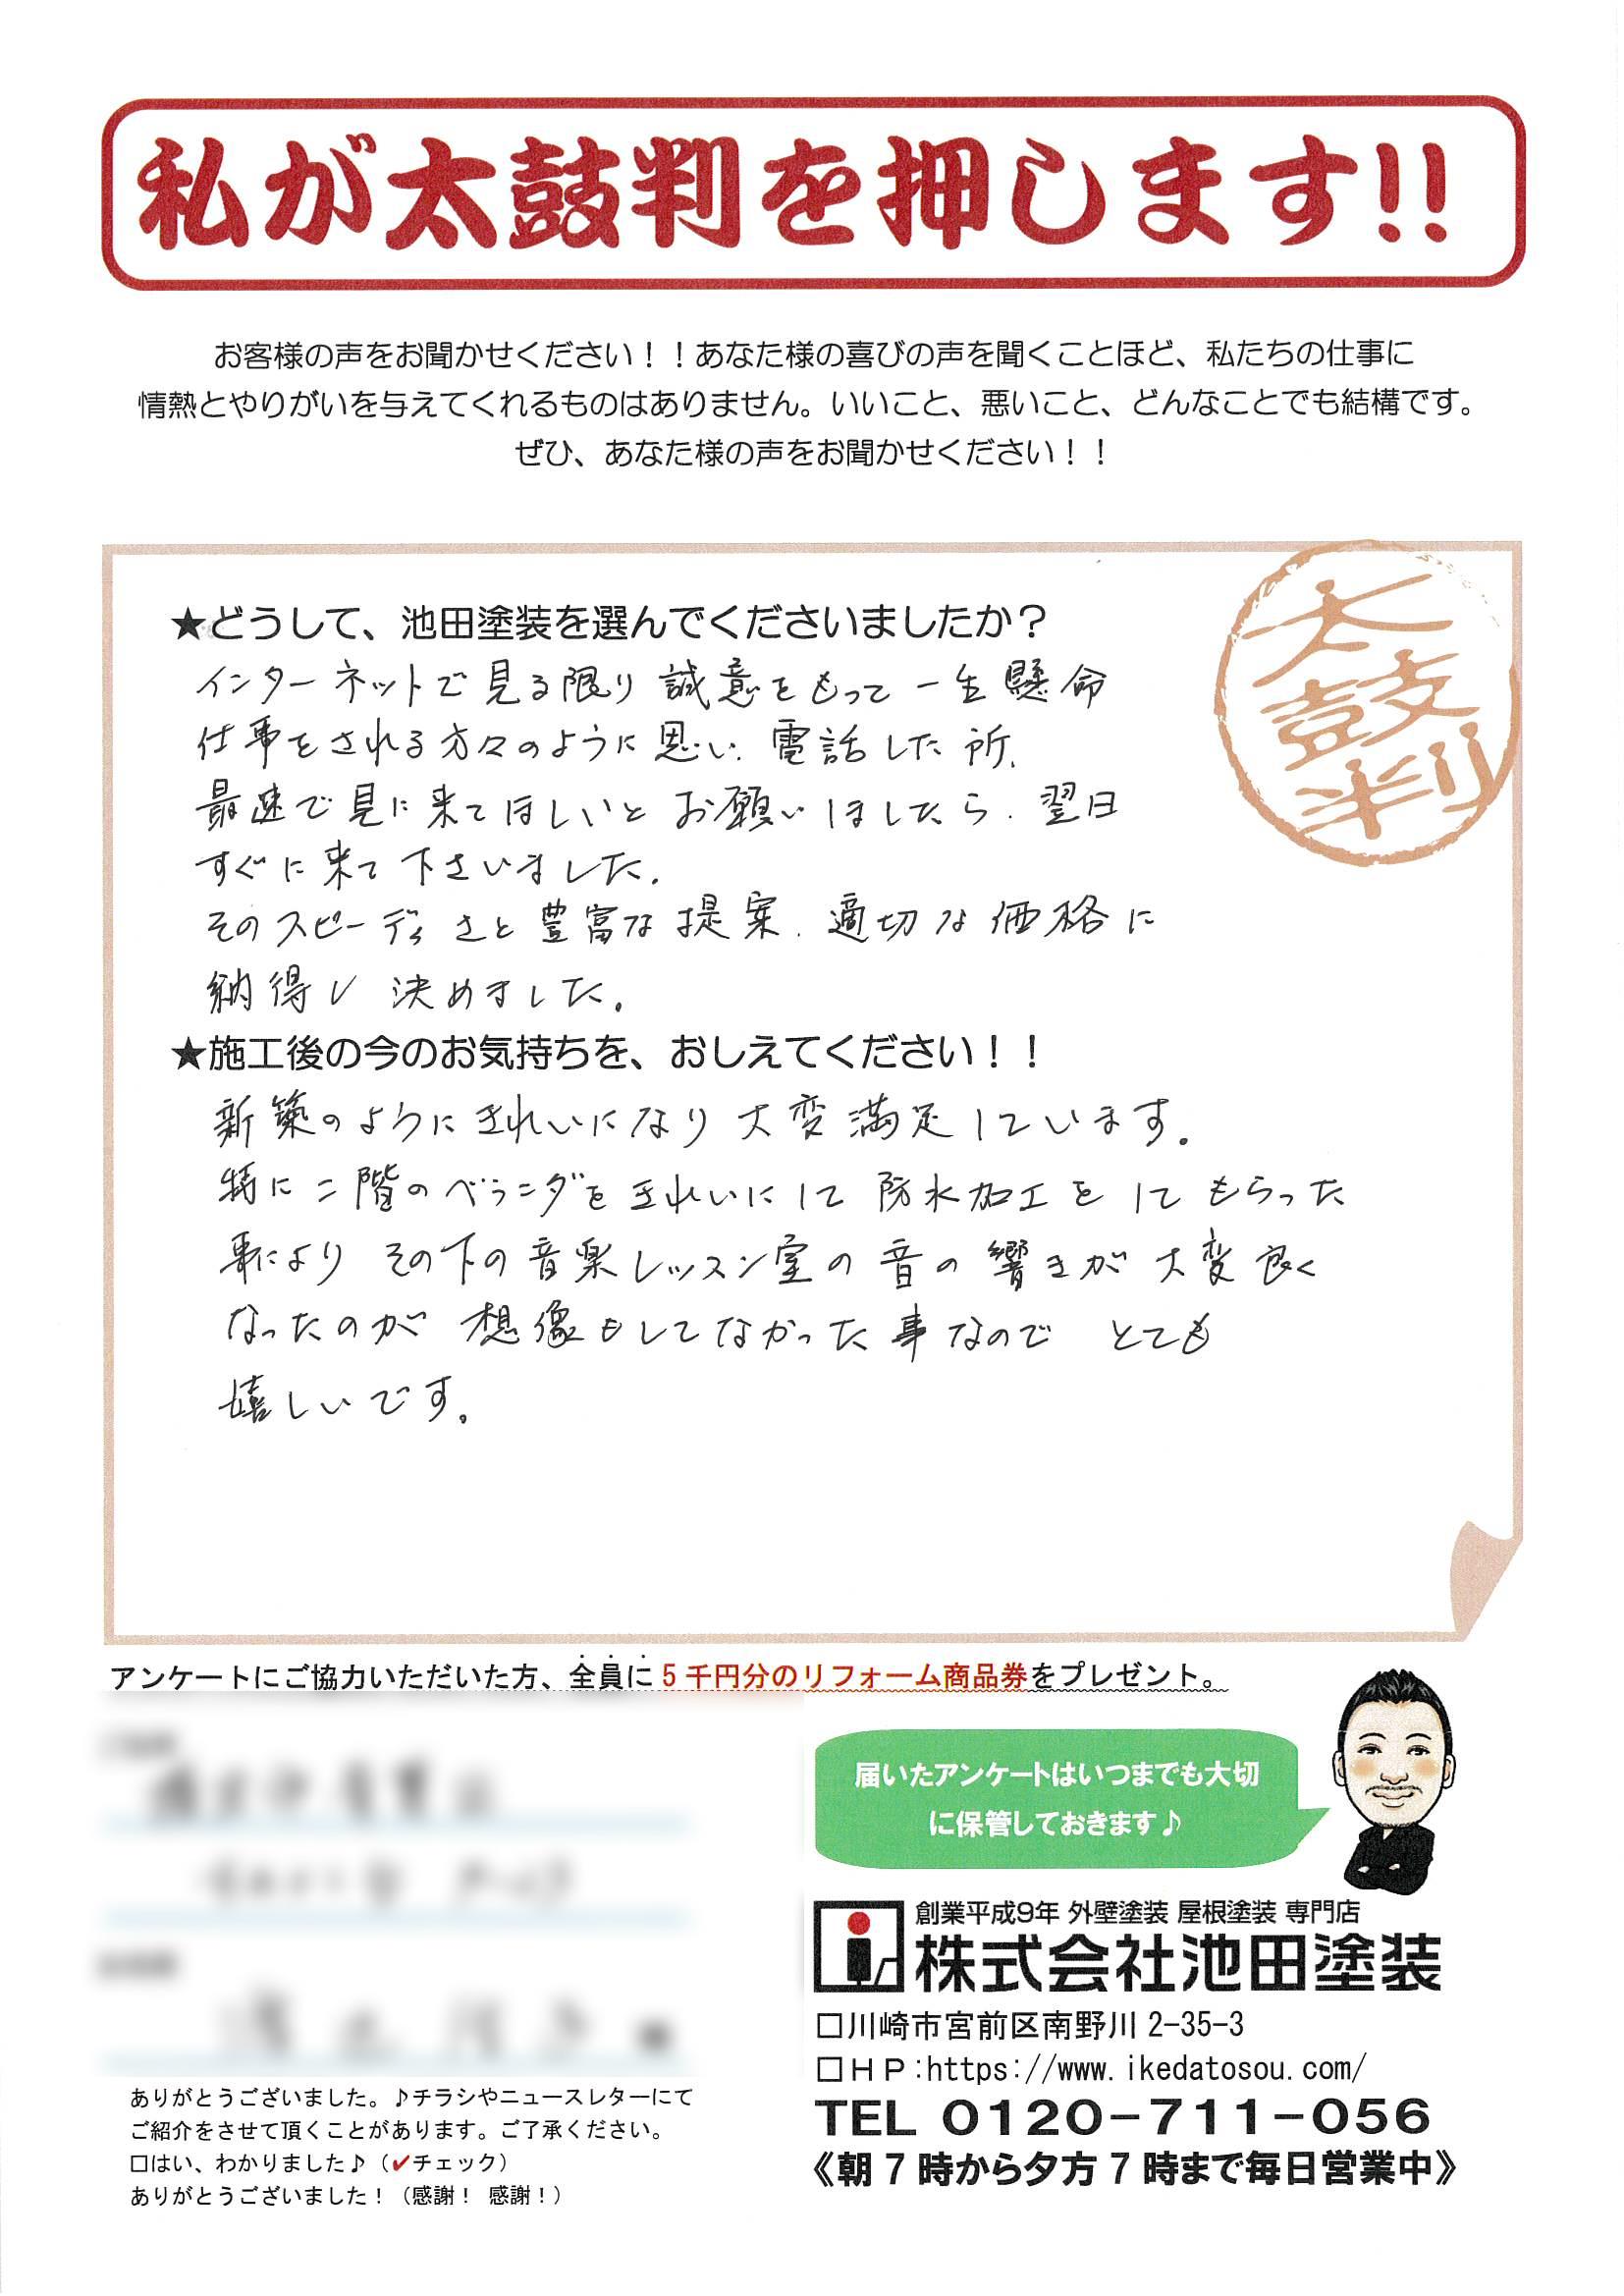 私が太鼓判を押します!!
お客様の声をお聞かせください！！あなた様の喜びの声を聞くことほど、私たちの仕事に
情熱とやりがいを与えてくれるものはありません。いいこと、悪いこと、どんなことでも結構です。
ぜひ、あなた様の声をお聞かせください！！
太鼓判
★どうして、池田塗装を選んでくださいましたか？
インターネットで見る限り 誠意をもって一生懸命
仕事をされる方々のように思い、電話した所、
最速で見に来てほしいとお願いしましたら、翌日
すぐに来て下さいました。
そのスピーディさと豊富な提案、適切な価格に
納得し 決めました。
★施工後の今のお気持ちを、おしえてください！！
新築のようにきれいになり大変満足しています。
特に二階のベランダをきれいにして防水加工をしてもらった
事により その下の音楽レッスン室の音の響きが大変良く
なったのが 想像もしてなかった事なので とても
嬉しいです。
アンケートにご協力いただいた方、全員に5千円分のリフォーム商品券をプレゼント。
届いたアンケートはいつまでも大切
に保管しておきます♪
創業平成9年 外壁塗装 屋根塗装 専門店
株式会社池田塗装
□川崎市宮前区南野川2-35-3
□ＨＰ:https://www.ikedatosou.com/
TEL 0120-711-056
《朝7時から夕方7時まで毎日営業中》
ありがとうございました。♪チラシやニュースレターにて
ご紹介をさせて頂くことがあります。ご了承ください。
□はい、わかりました♪（✔チェック）
ありがとうございました！（感謝！ 感謝！）